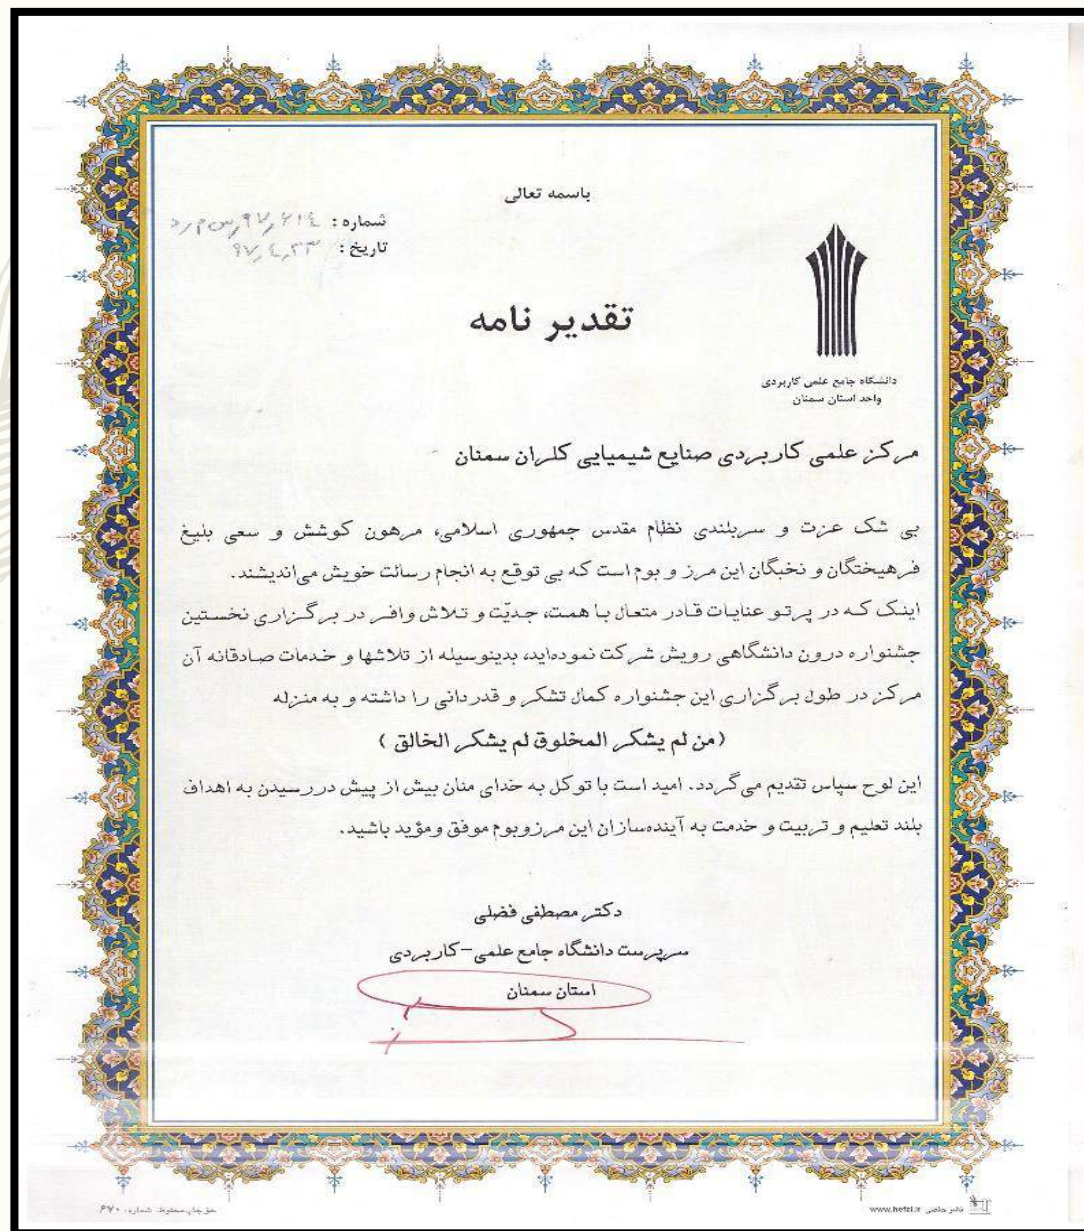 باسمه تعالی
شماره :
تاریخ : ۹۷٫۴٫۲۳
تقدیر نامه
دانشگاه جامع علمی کاربردی
واحد استان سمنان
مرکز علمی کاربردی صنایع شیمیایی کلران سمنان
بی شک عزت و سربلندی نظام مقدس جمهوری اسلامی، مرهون کوشش و سعی بلیغ
فرهیختگان و نخبگان این مرز و بوم است که بی توقع به انجام رسالت خویش می‌اندیشند.
اینک که در پرتو عنایات قادر متعال با همت، جدیّت و تلاش وافر در برگزاری نخستین
جشنواره درون دانشگاهی رویش شرکت نموده‌اید، بدینوسیله از تلاشها و خدمات صادقانه آن
مرکز در طول برگزاری این جشنواره کمال تشکر و قدردانی را داشته و به منزله
(من لم یشکر المخلوق لم یشکر الخالق )
این لوح سپاس تقدیم می‌گردد. امید است با توکل به خدای منان بیش از پیش در رسیدن به اهداف
بلند تعلیم و تربیت و خدمت به آینده‌سازان این مرزوبوم موفق ومؤید باشید.
دکتر مصطفی فضلی
سرپرست دانشگاه جامع علمی-کاربردی
استان سمنان
www.hefzi.ir نشر حفظی
حق چاپ محفوظ. شماره: ۶۷۰